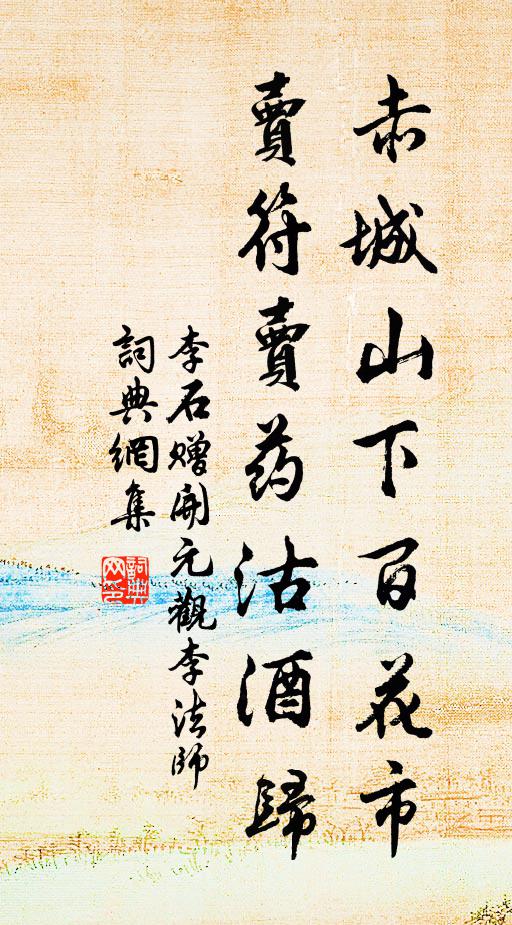 赤城山下百花市
賣符賣药沽酒歸
李石赠開元觀李法師
詞典網集
詞典网免